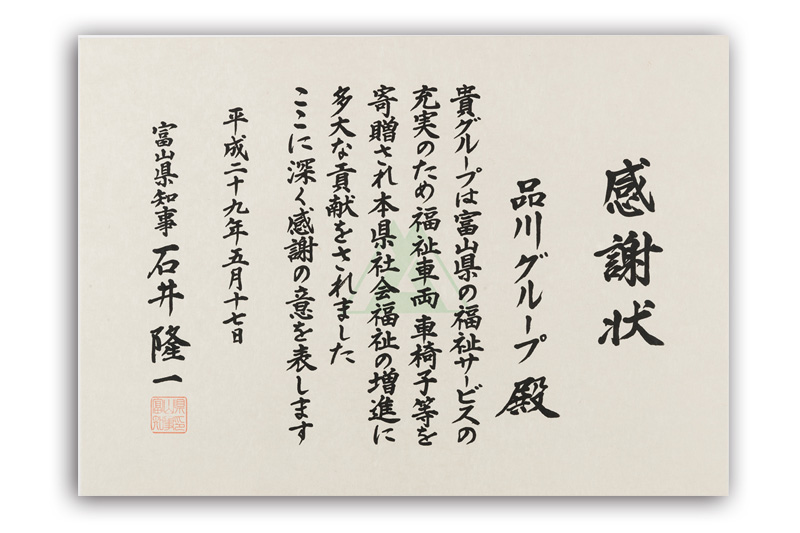 感謝状
品川グループ 殿
貴グループは富山県の福祉サービスの
充実のため福祉車両 車椅子等を
寄贈され本県社会福祉の増進に
多大な貢献をされました
ここに深く感謝の意を表します
平成二十九年五月十七日
富山県知事 石井 隆一